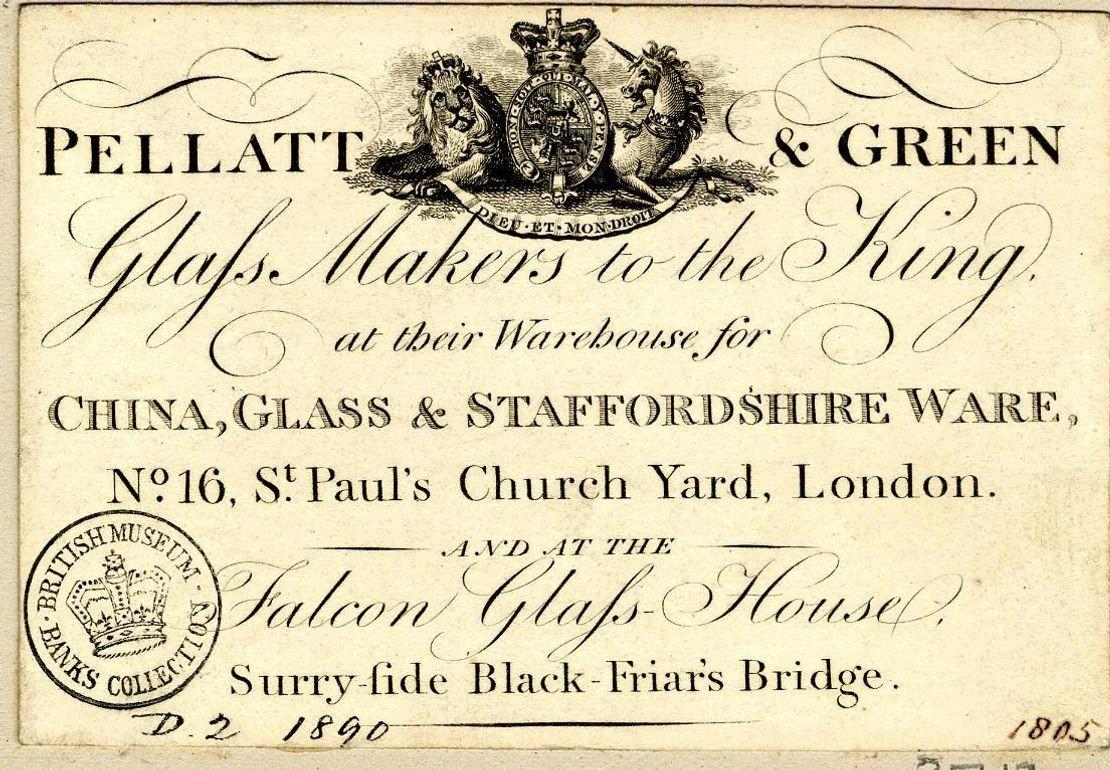 PELLATT & GREEN
HONI·SOIT·QUI·MAL·Y·PENSE
DIEU·ET·MON·DROIT
Glaſs Makers to the King,
at their Warehouse for
CHINA, GLASS & STAFFORDSHIRE WARE,
No. 16, St. Paul's Church Yard, London.
AND AT THE
Falcon Glaſs-House,
Surry-ſide Black-Friar's Bridge.
BRITISH MUSEUM
BANKS COLLECTION
D.2 1890
1805